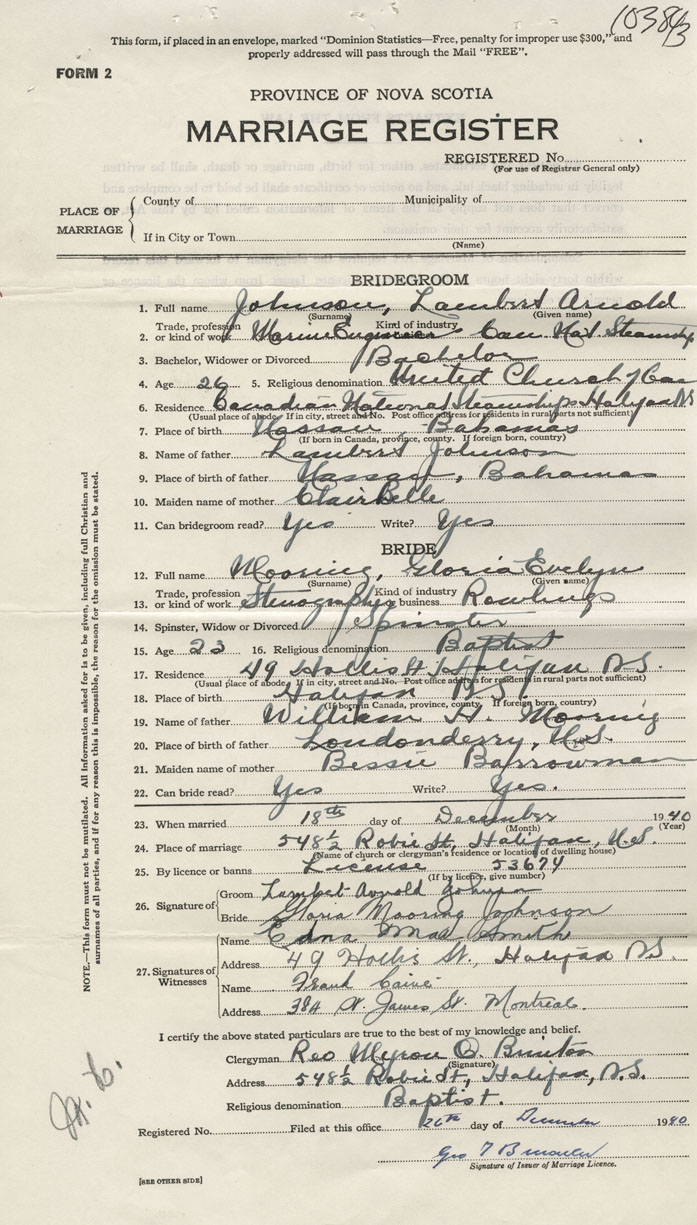 10384/3
This form, if placed in an envelope, marked "Dominion Statistics—Free, penalty for improper use $300," and
properly addressed will pass through the Mail "FREE".
FORM 2
PROVINCE OF NOVA SCOTIA
MARRIAGE REGISTER
REGISTERED No.
(For use of Registrar General only)
PLACE OF MARRIAGE
County of Municipality of
If in City or Town
(Name)
BRIDEGROOM
1. Full name Johnson, Lambert Arnold
(Surname) (Given name)
2. Trade, profession or kind of work Marine Engineer Kind of industry Can. Nat. Steamship
3. Bachelor, Widower or Divorced Bachelor
4. Age 26 5. Religious denomination United Church of Can
6. Residence Canadian National Steamships Halifax NS
(Usual place of abode. If in city, street and No. Post office address for residents in rural parts not sufficient)
7. Place of birth Nassau, Bahamas
(If born in Canada, province, county. If foreign born, country)
8. Name of father Lambert Johnson
9. Place of birth of father Nassau, Bahamas
10. Maiden name of mother Clair Belle
11. Can bridegroom read? Yes Write? Yes
BRIDE
12. Full name Mooring, Gloria Evelyn
(Surname) (Given name)
13. Trade, profession or kind of work Stenographer Kind of industry business Rawlings
14. Spinster, Widow or Divorced Spinster
15. Age 23 16. Religious denomination Baptist
17. Residence 49 Hollis St Halifax N.S.
(Usual place of abode. If in city, street and No. Post office address for residents in rural parts not sufficient)
18. Place of birth Halifax N.S.
(If born in Canada, province, county. If foreign born, country)
19. Name of father William H. Mooring
20. Place of birth of father Londonderry, N.S.
21. Maiden name of mother Bessie Barrowman
22. Can bride read? Yes Write? Yes.
23. When married 18th day of December 1940
(Month) (Year)
24. Place of marriage 548½ Robie St, Halifax, N.S.
(Name of church or clergyman's residence or location of dwelling house)
25. By licence or banns License 53674
(If by licence, give number)
26. Signature of Groom Lambert Arnold Johnson
Bride Gloria Mooring Johnson
27. Signatures of Witnesses
Name Edna Mae Smith
Address 49 Hollis St., Halifax N.S.
Name Frank
Address 384 St. James St. Montreal.
I certify the above stated particulars are true to the best of my knowledge and belief.
Clergyman Rev Myron O. Brinton
(Signature)
Address 548½ Robie St, Halifax, N.S.
Religious denomination Baptist.
Registered No. Filed at this office 26th day of December 1940
Geo
Signature of Issuer of Marriage Licence.
[SEE OTHER SIDE]
NOTE.—This form must not be mutilated. All information asked for is to be given, including full Christian and
surnames of all parties, and if for any reason this is impossible, the reason for the omission must be stated.